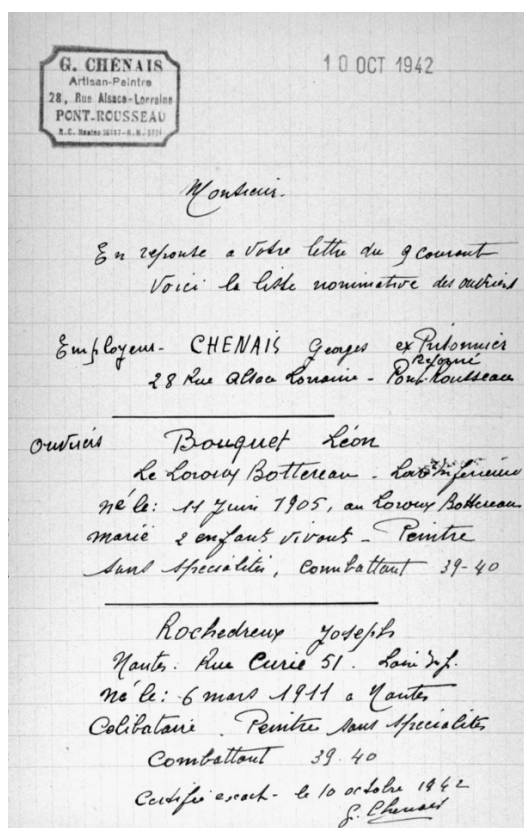 G. CHÉNAIS
Artisan-Peintre
28, Rue Alsace-Lorraine
PONT-ROUSSEAU
R.C. Nantes
10 OCT 1942
Monsieur.
En reponse a votre lettre du 9 courant
Voici la liste nominative des ouvriers
Employeur - CHENAIS Georges ex Prisonnier
Reformé
28 Rue Alsace Lorraine - Pont-Rousseau
ouvriers Bouquet Léon
Le Loroux Bottereau - Loire Inférieure
né le : 11 Juin 1905, au Loroux Bottereau
marié 2 enfants vivants - Peintre
sans spécialités, combattant 39-40
Rochedreux Joseph
Nantes. Rue Curie 51. Loire Inf.
né le : 6 mars 1911 a Nantes
Célibataire. Peintre sans spécialités
Combattant 39.40
Certifié exact - le 10 octobre 1942
G. Chenais